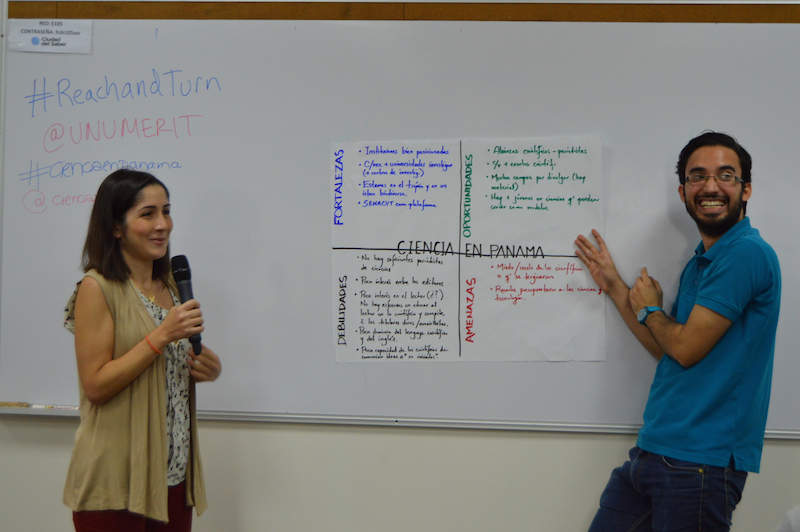 RED: E105
CONTRASEÑA:
Ciudad
del Saber
#ReachandTurn
@UNUMERIT
#cienciaenpanama
@cienc
FORTALEZAS
• Instituciones bien posicionadas
• universidades investigan
(o centros de investig.)
• Estamos en el trópico y en un
istmo biodiverso.
• SENACYT como plataforma
OPORTUNIDADES
• Alianzas científicos - periodistas
• científ.
• Muchos campos por divulgar (hay
material)
• Hay + jóvenes en ciencias q' pueden
servir como modelos.
CIENCIA EN PANAMA
DEBILIDADES
• No hay suficientes periodistas
de ciencia
• Poco interés entre los editores
• Poco interés en el lector (¿?)
No hay esfuerzo en educar al
lector en lo científico y compite
c los titulares
• Poco dominio del lenguaje científico
y del inglés.
• Poca capacidad de los científicos de
comunicar ideas
AMENAZAS
• Miedo/recelo de los científicos
a q' se tergiversen
• Recorte presupuestario a las ciencias y
tecnología.